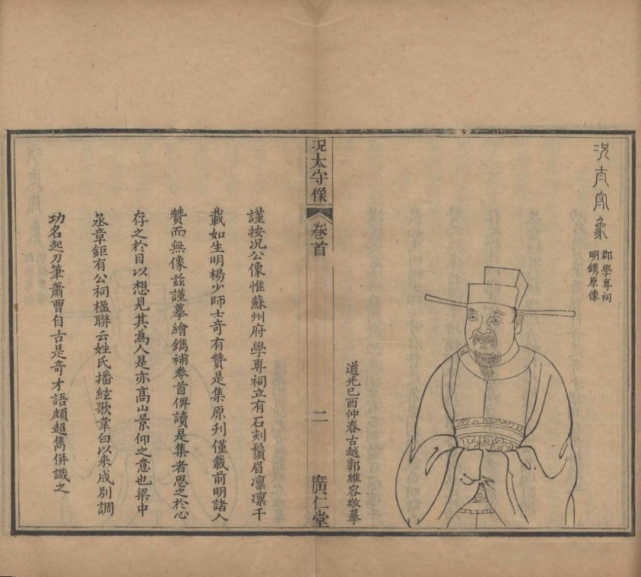 况太守象
郡學專祠
明鐫原像
道光己酉仲春古越郭維容敬摹
况太守像
卷首
二
廣仁堂
謹按况公像惟蘇州府學專祠立有石刻鬚眉凛凛千
載如生明楊少師士奇有贊是集原刋僅載前明諸人
贊而無像兹謹摹繪鐫補卷首俾讀是集者思之於心
存之於目以想見其為人是亦髙山景仰之意也梁中
丞章鉅有公祠楹聯云姓氏播絃歌韋白以來成别調
功名起刀筆蕭曹自古是奇才語頗超雋併識之